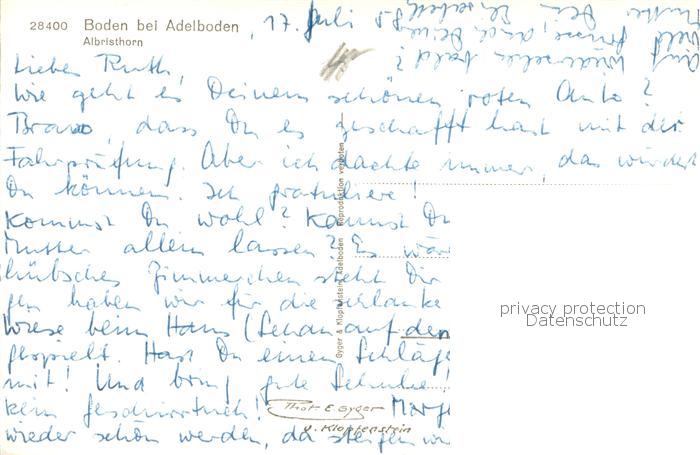 28400 Boden bei Adelboden
Albristhorn
, 17. Juli
Liebes Ruth,
Wie geht es Deinem schönen roten Auto?
Bravo, dass Du es geschafft hast mit der
Fahrprüfung. Aber ich dachte immer, das würdest
Du können. Ich gratuliere!
Kommst Du wohl? Kannst Du
Mutter allein lassen? Es wär
hübsches Zimmerchen steht Dir
haben wir für die schlanke
Wiese beim Haus (schon auf den
gespielt. Hast Du einen Schläge
mit! Und bring gute Schuhe,
kein
wieder schön werden, da steigen wi
auf Wiedersehn bald?
viel Grüsse, auch Deiner
Mutter Dein Elisabeth
Gyger & Klopfenstein Adelboden Reproduktion verboten
Phot. E. Gyger
u. Klopfenstein
privacy protection
Datenschutz